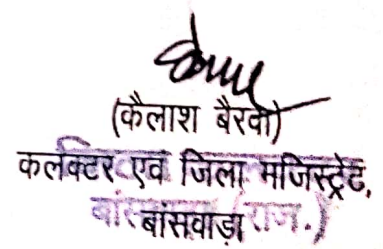 (कैलाश बैरवा)
कलक्टर एवं जिला मजिस्ट्रेट,
बांसवाड़ा (राज.)